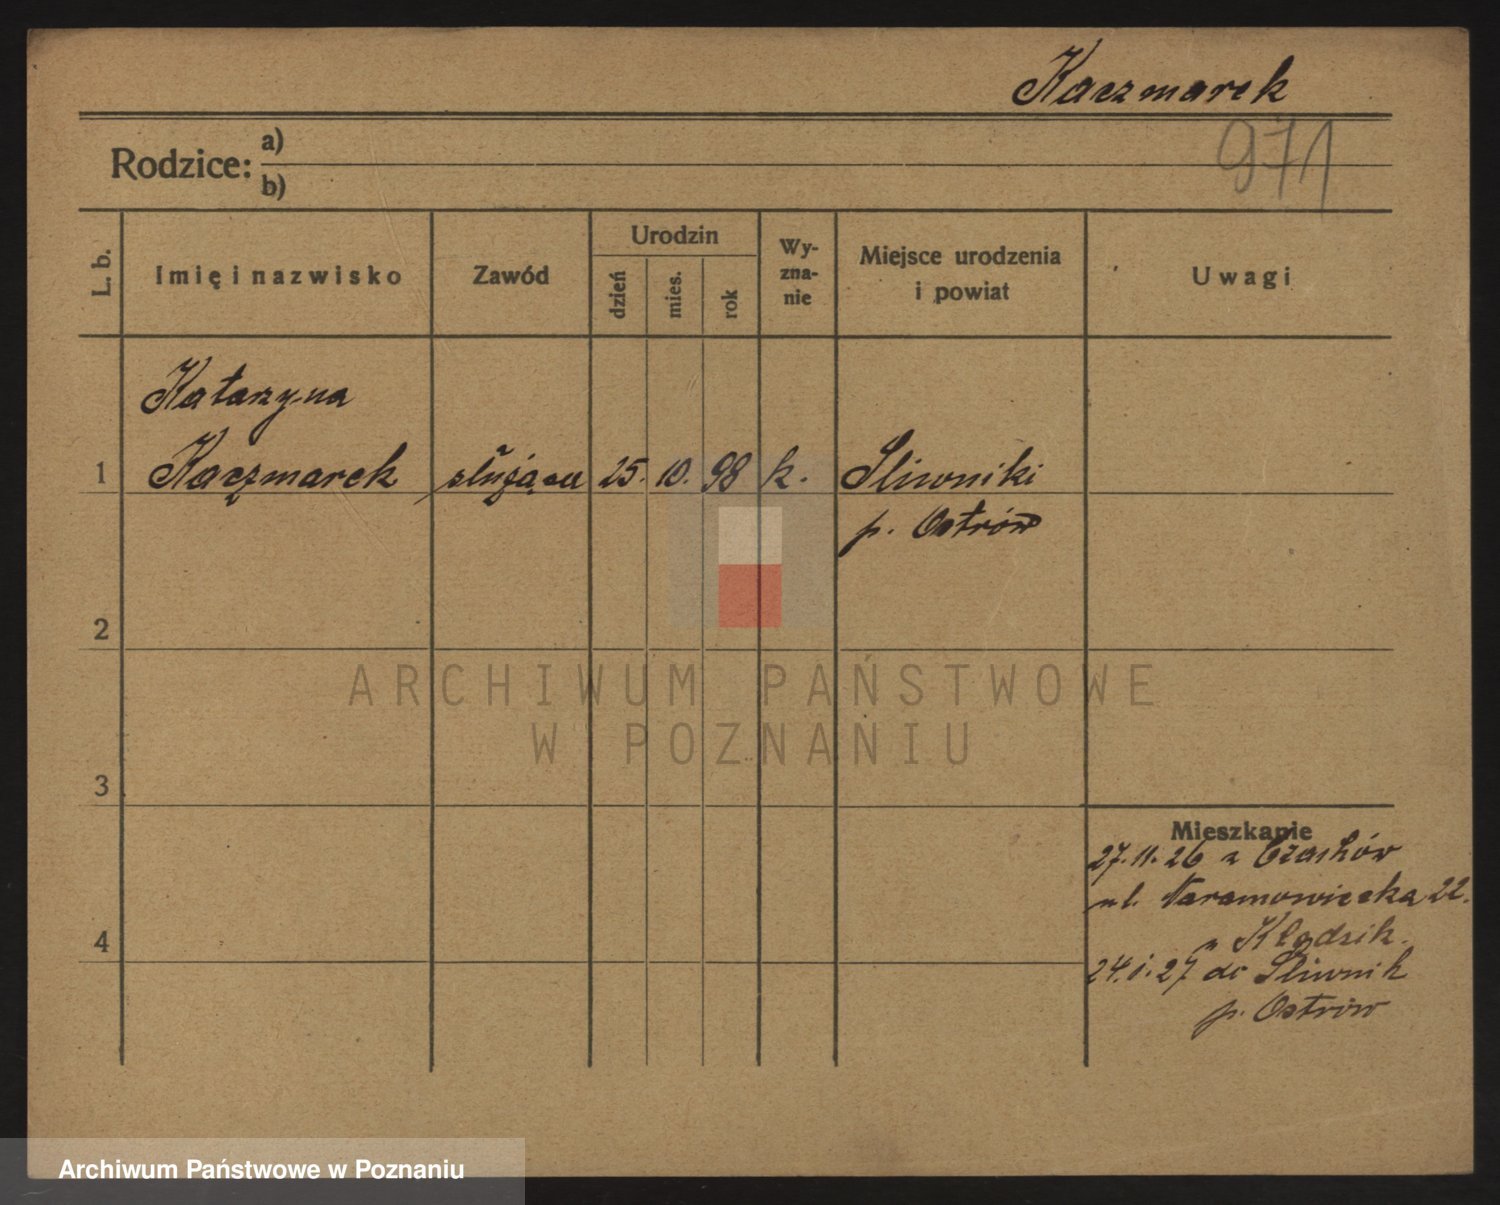 Kaczmarek
971
Rodzice: a)
b)
L. b. Imię i nazwisko Zawód Urodzin dzień mies. rok Wy-zna-nie Miejsce urodzenia i powiat Uwagi
Katarzyna
1 Kaczmarek służąca 25. 10. 98 k. Śliwniki
p. Ostrów
2
3
4
Mieszkanie
27.11.26 z Czachów
ul. Naramowicka 22.
24.1.27 do Śliwnik
p. Ostrów
ARCHIWUM PAŃSTWOWE
W POZNANIU
Archiwum Państwowe w Poznaniu